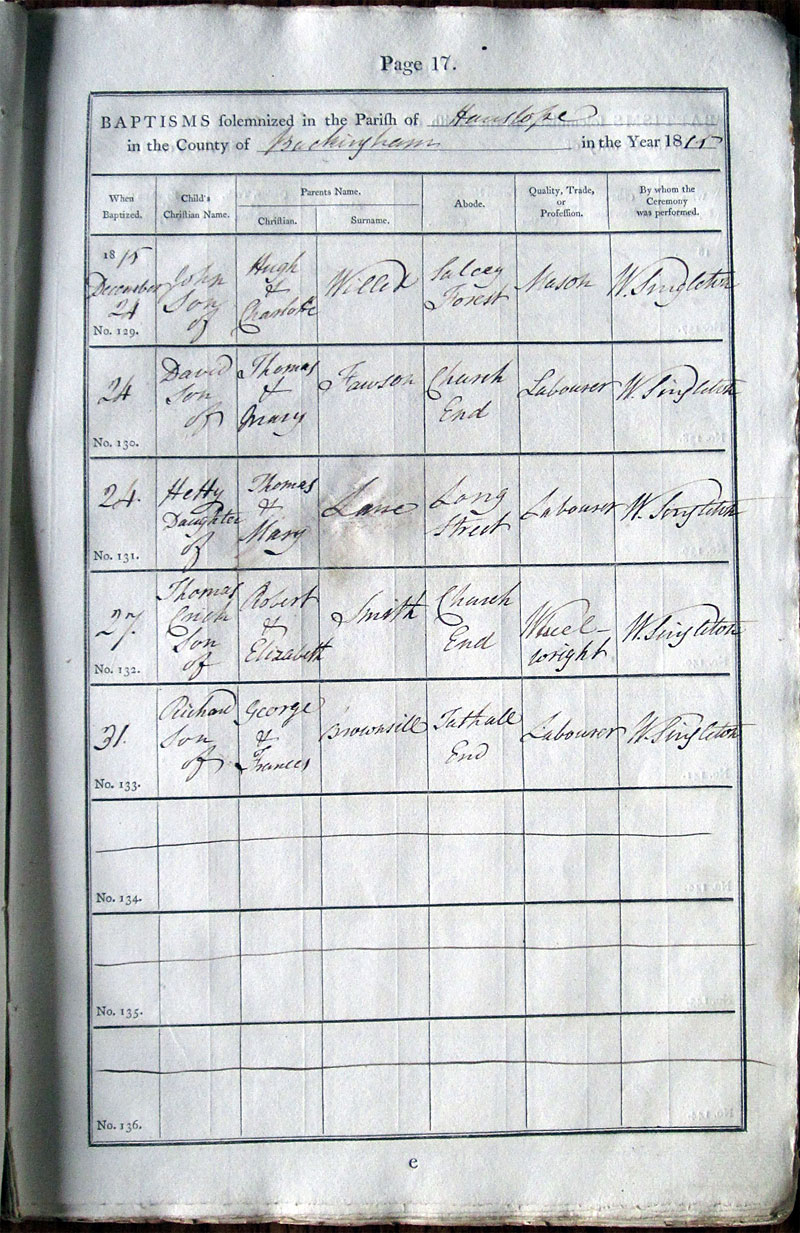 Page 17.
BAPTISMS solemnized in the Parish of Hanslope
in the County of Buckingham in the Year 1815
When Baptized.
Child's Christian Name.
Parents Name.
Christian.
Surname.
Abode.
Quality, Trade, or Profession.
By whom the Ceremony was performed.
1815
December
24
No. 129.
John
Son
of
Hugh
&
Charlotte
Salcey
Forest
Mason
W. Singleton
24
No. 130.
David
Son
of
Thomas
&
Mary
Fawson
Church
End
Labourer
W. Singleton
24.
No. 131.
Hetty
Daughter
of
Thomas
&
Mary
Lane
Long
Street
Labourer
W. Singleton
27.
No. 132.
Thomas
Son
of
Robert
&
Elizabeth
Smith
Church
End
Wheel-
wright
W. Singleton
31.
No. 133.
Richard
Son
of
George
&
Frances
Brownsill
Tathall
End
Labourer
W. Singleton
No. 134.
No. 135.
No. 136.
e